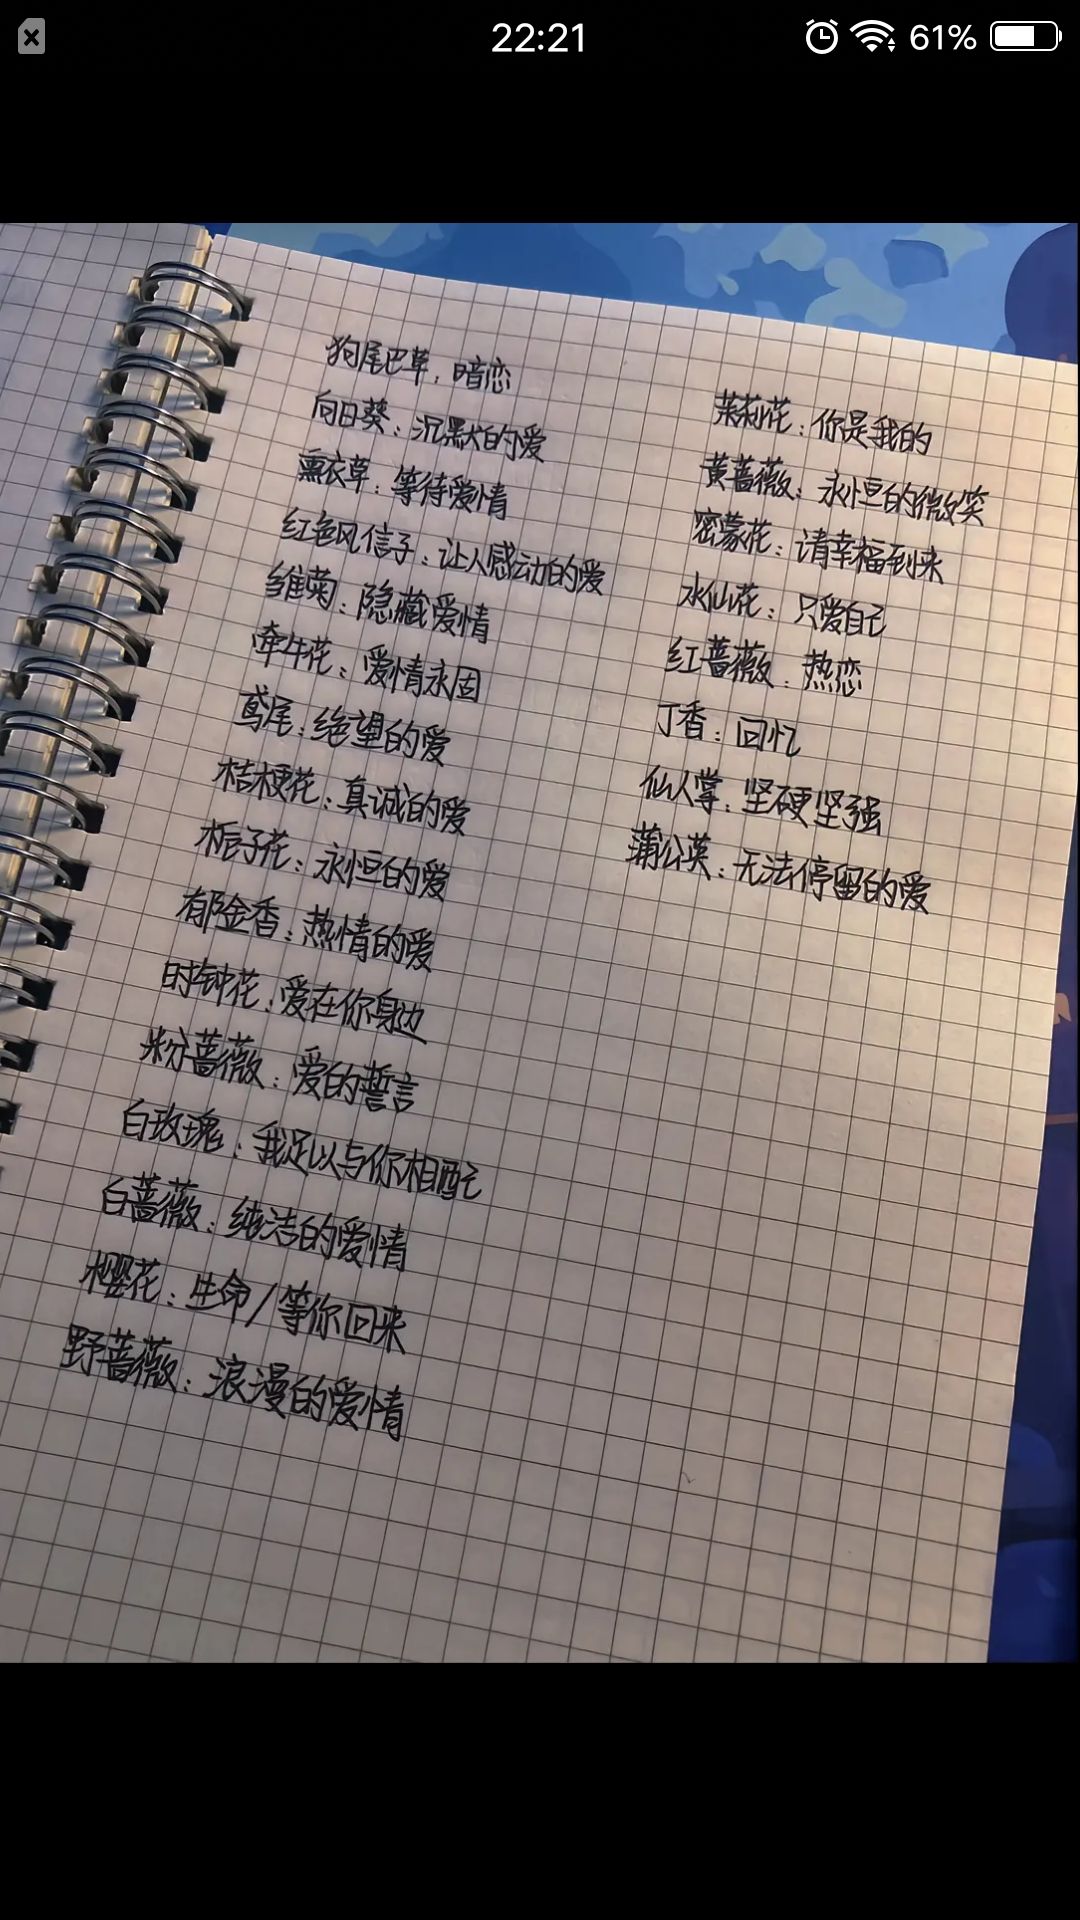 22:21
61%
狗尾巴草：暗恋
向日葵：沉默的爱
熏衣草：等待爱情
红色风信子：让人感动的爱
雏菊：隐藏爱情
牵牛花：爱情永固
鸢尾：绝望的爱
桔梗花：真诚的爱
栀子花：永恒的爱
郁金香：热情的爱
时钟花：爱在你身边
粉蔷薇：爱的誓言
白玫瑰：我足以与你相配
白蔷薇：纯洁的爱情
樱花：生命/等你回来
野蔷薇：浪漫的爱情
茉莉花：你是我的
黄蔷薇：永恒的微笑
密蒙花：请幸福到来
水仙花：只爱自己
红蔷薇：热恋
丁香：回忆
仙人掌：坚硬坚强
蒲公英：无法停留的爱